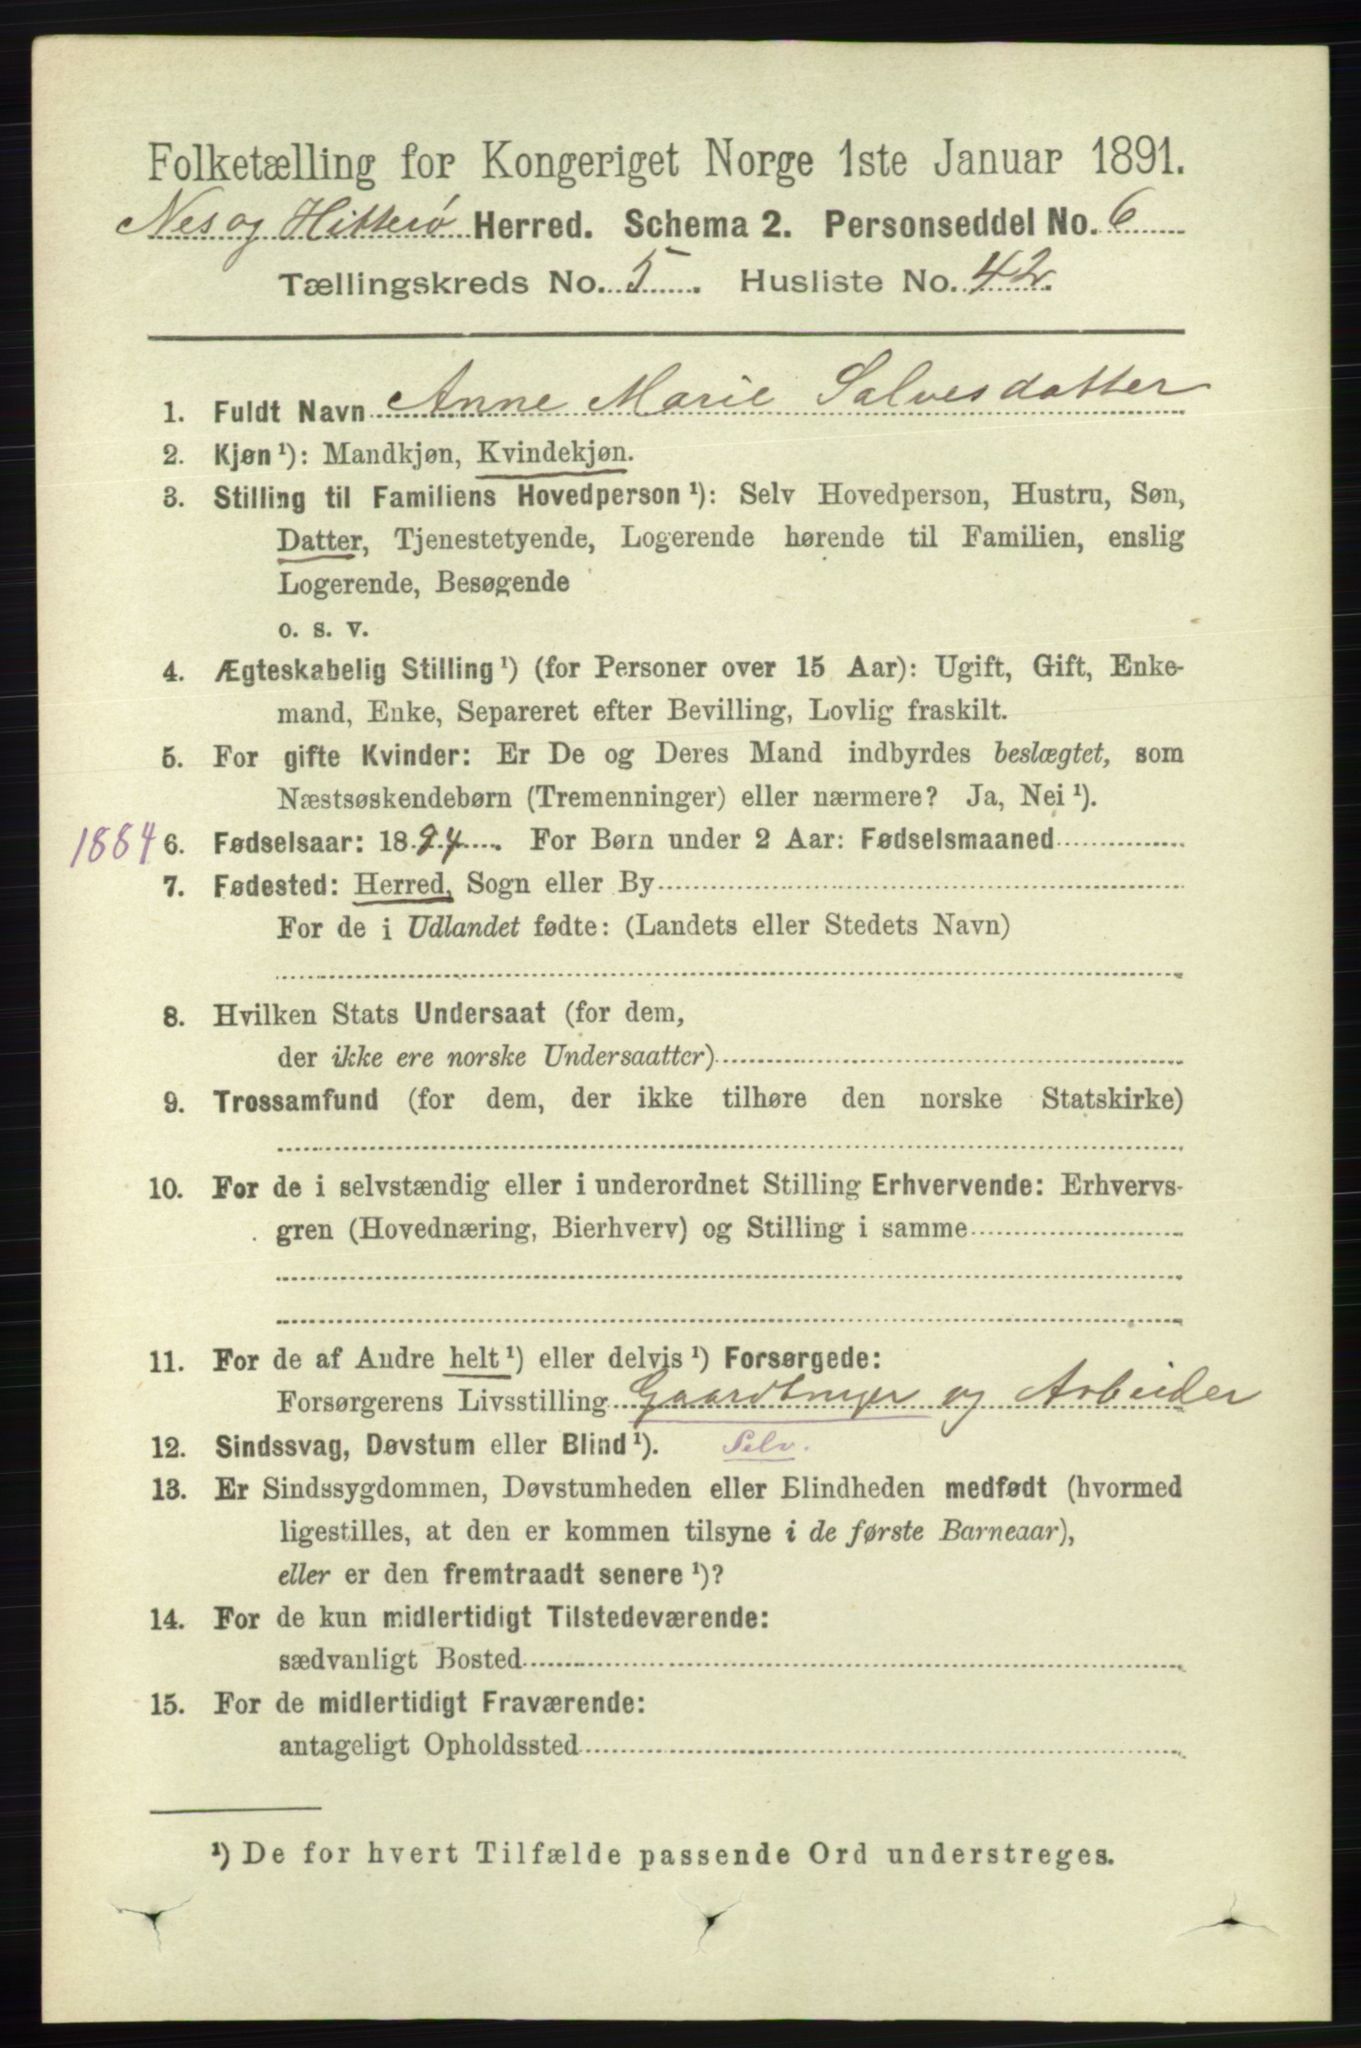 Folketælling for Kongeriget Norge 1ste Januar 1891.
Nes og Hitterø Herred. Schema 2. Personseddel No. 6
Tællingskreds No. 5. Husliste No. 42.
1. Fuldt Navn Anne Marie Salvesdatter
2. Kjøn¹): Mandkjøn, Kvindekjøn.
3. Stilling til Familiens Hovedperson¹): Selv Hovedperson, Hustru, Søn,
Datter, Tjenestetyende, Logerende hørende til Familien, enslig
Logerende, Besøgende
o. s. v.
4. Ægteskabelig Stilling¹) (for Personer over 15 Aar): Ugift, Gift, Enke-
mand, Enke, Separeret efter Bevilling, Lovlig fraskilt.
5. For gifte Kvinder: Er De og Deres Mand indbyrdes beslægtet, som
Næstsøskendebørn (Tremenninger) eller nærmere? Ja, Nei¹).
1884 6. Fødselsaar: 18 . For Børn under 2 Aar: Fødselsmaaned
7. Fødested: Herred, Sogn eller By
For de i Udlandet fødte: (Landets eller Stedets Navn)
8. Hvilken Stats Undersaat (for dem,
der ikke ere norske Undersaatter)
9. Trossamfund (for dem, der ikke tilhøre den norske Statskirke)
10. For de i selvstændig eller i underordnet Stilling Erhvervende: Erhvervs-
gren (Hovednæring, Bierhverv) og Stilling i samme
11. For de af Andre helt¹) eller delvis¹) Forsørgede:
Forsørgerens Livsstilling Gaardbruger og Arbeider
12. Sindssvag, Døvstum eller Blind¹). Selv.
13. Er Sindssygdommen, Døvstumheden eller Blindheden medfødt (hvormed
ligestilles, at den er kommen tilsyne i de første Barneaar),
eller er den fremtraadt senere¹)?
14. For de kun midlertidigt Tilstedeværende:
sædvanligt Bosted
15. For de midlertidigt Fraværende:
antageligt Opholdssted
¹) De for hvert Tilfælde passende Ord understreges.